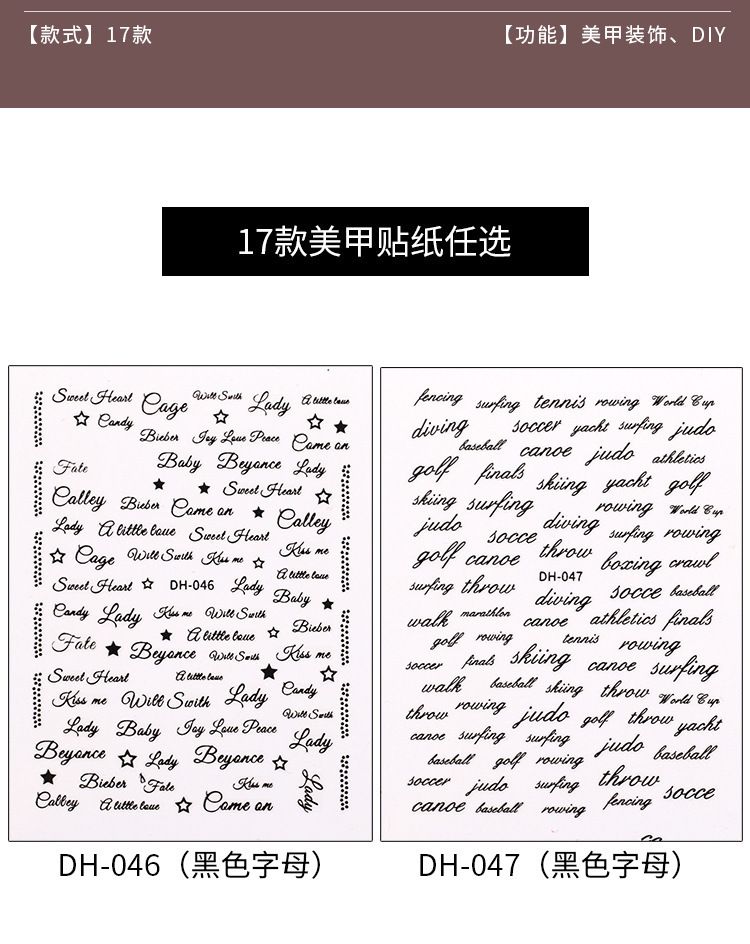 【款式】17款
【功能】美甲装饰、DIY
17款美甲贴纸任选
Sweet Heart Cage Will Smith Lady A little love
Candy
Bieber Joy Love Peace Come on
Fate Baby Beyonce Lady
Sweet Heart
Calley Bieber Come on Calley
Lady A little love Sweet Heart
Cage Will Smith Kiss me Kiss me
A little love
Sweet Heart DH-046 Lady Baby
Candy Lady Kiss me Will Smith
A little love Bieber
Fate Beyonce Will Smith Kiss me
Sweet Heart A little love
Kiss me Will Smith Lady Candy
Will Smith
Lady Baby Joy Love Peace Lady
Beyonce Lady Beyonce
Bieber Fate Kiss me Lady
Calley A little love Come on
fencing surfing tennis rowing World Cup
diving soccer yacht surfing judo
baseball canoe judo athletics
golf finals skiing yacht golf
skiing surfing rowing World Cup
judo socce diving surfing rowing
golf canoe throw boxing crawl
DH-047
surfing throw diving socce baseball
walk marathlon canoe athletics finals
golf rowing tennis rowing
soccer finals skiing canoe surfing
walk baseball skiing throw World Cup
throw rowing judo golf throw yacht
canoe surfing surfing judo baseball
baseball golf rowing
soccer judo surfing throw socce
canoe baseball rowing fencing
DH-046（黑色字母）
DH-047（黑色字母）